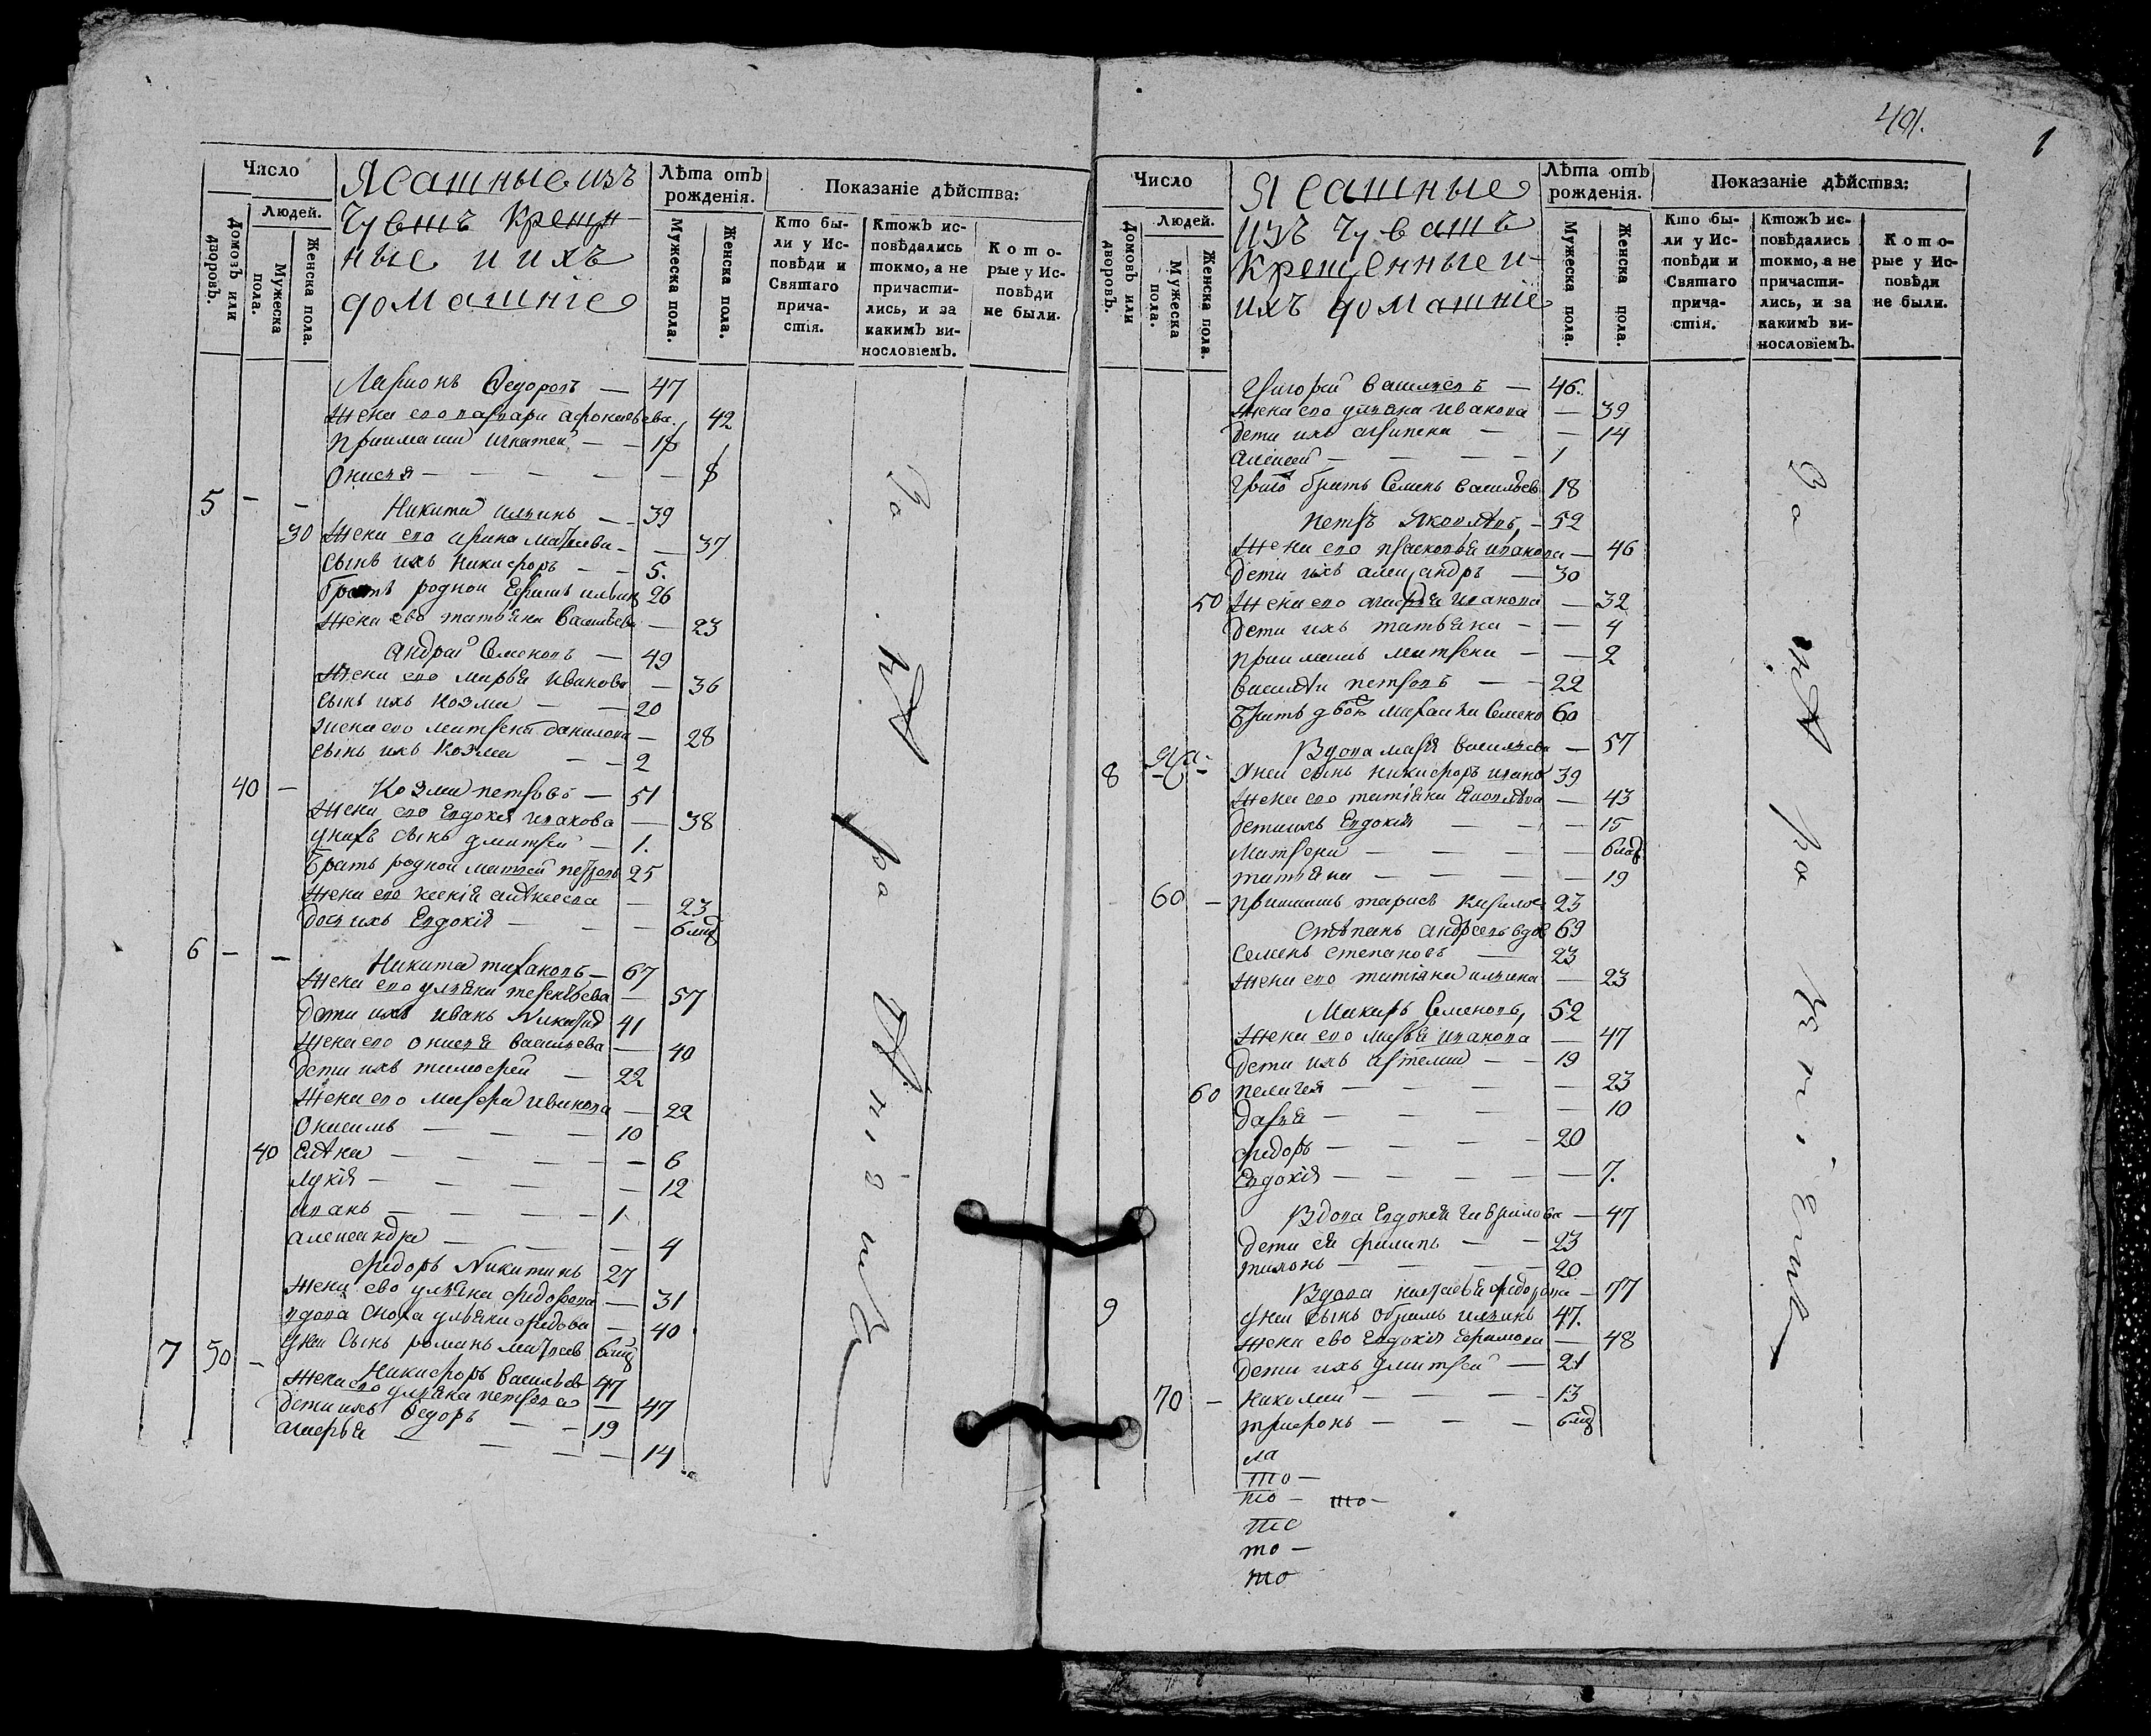 Число
Людей.
Домовъ или дворовъ.
Мужеска пола.
Женска пола.
Ясашные изъ
Чувашъ крещен
ные и ихъ
домашніе
Лѣта отъ рожденія.
Мужеска пола.
Женска пола.
Показаніе дѣйства:
Кто бы-
ли у Ис-
повѣди и
Святаго
прича-
стія.
Ктожъ ис-
повѣдались
токмо, а не
причасти-
лись, и за
какимъ ви-
нословіемъ.
Кото-
рые у Ис-
повѣди
не были.
Ларионъ Ѳедоровъ — 47
жена его варвара афонасьева 42
приимаши игнатей — 18
Онисья — 8
5 — — Никита ильинъ — 39
30 жена его арина матвева — 37
сынъ ихъ никифоръ — 5.
братъ родной Ефимъ ильинъ 26
жена ево татьяна васильева — 23
андрей Семеновъ — 49
жена его марья иванова — 36
сынъ ихъ козма — 20
жена его матрена данилова — 28
сынъ ихъ козма — 2
40 — Козма петровъ — 51
жена его Евдокея иванова — 38
у нихъ сынъ дмитрей — 1.
братъ родной матвей петровъ 25
жена его ксения алексеева — 23
дочь ихъ Евдокія — 6 мц
6 — — Никита тарасовъ — 67
жена его ульяна терентьева — 57
дети ихъ иванъ 41
жена его онисья васильева — 40
дети ихъ тимофей — 22
жена его марфа иванова — 22
Онисимъ — 10
40 Елена — 6
лукія — 12
иванъ — 1
александра — 4
федоръ Никитинъ 27
жена ево ульяна федорова — 31
вдова сноха ульяна федова — 40
у неи сынъ романъ матвеев 6 мц
7 50 — Никифоръ васильев 47
жена его ульяна петрова — 47
дети ихъ Ѳедоръ — 19
агафья — 14
За нѣ ра дѣ ніѣ мъ
491.
1
Число
Людей.
Домовъ или дворовъ.
Мужеска пола.
Женска пола.
Ясашные
изъ чувашъ
крещенные и
ихъ домашніе
Лѣта отъ рожденія.
Мужеска пола.
Женска пола.
Показаніе дѣйства:
Кто бы-
ли у Ис-
повѣди и
Святаго
прича-
стія.
Ктожъ ис-
повѣдались
токмо, а не
причасти-
лись, и за
какимъ ви-
нословіемъ.
Кото-
рые у Ис-
повѣди
не были.
Григорей васильевъ — 46.
жена его ульяна иванова — 39
дети ихъ агрипена — 14
алексей — 1
братъ Семенъ васильев 18
петръ Яковлевъ — 52
жена его прасковья иванова — 46
дети ихъ александръ — 30
50 жена его агафья иванова — 32
дети ихъ татьяна — 4
приимашъ матрена — 2
василеи петровъ — 22
братъ Семено 60
Вдова марья васильева — 57
8 у неи сынъ никифоръ ивано 39
жена его татьяна Яковлева — 43
дети ихъ Евдокія — 15
матрена —
татьяна — 19
60 — приимашъ тарасъ кирилов 23
Степанъ андреевъ вдов 69
Семенъ степановъ — 23
жена его татьяна ильина — 23
Макаръ Семеновъ 52
жена его марья иванова — 47
дети ихъ артемий — 19
60 пелагея — 23
дарья — 10
федоръ — 20
Евдокія — 7.
Вдова Евдокея гаврилова — 47
дети ея филипъ — 23
тихонъ — 20
Вдова настасья федорова — 77
9 у неи сынъ ильинъ 47.
жена ево Евдокія Ефимова — 48
дети ихъ дмитрей — 21
70 — николай — 13
трифонъ — 6 мц
ла
то —
то — то —
то
то —
то
За нѣ ра дѣ ніемъ